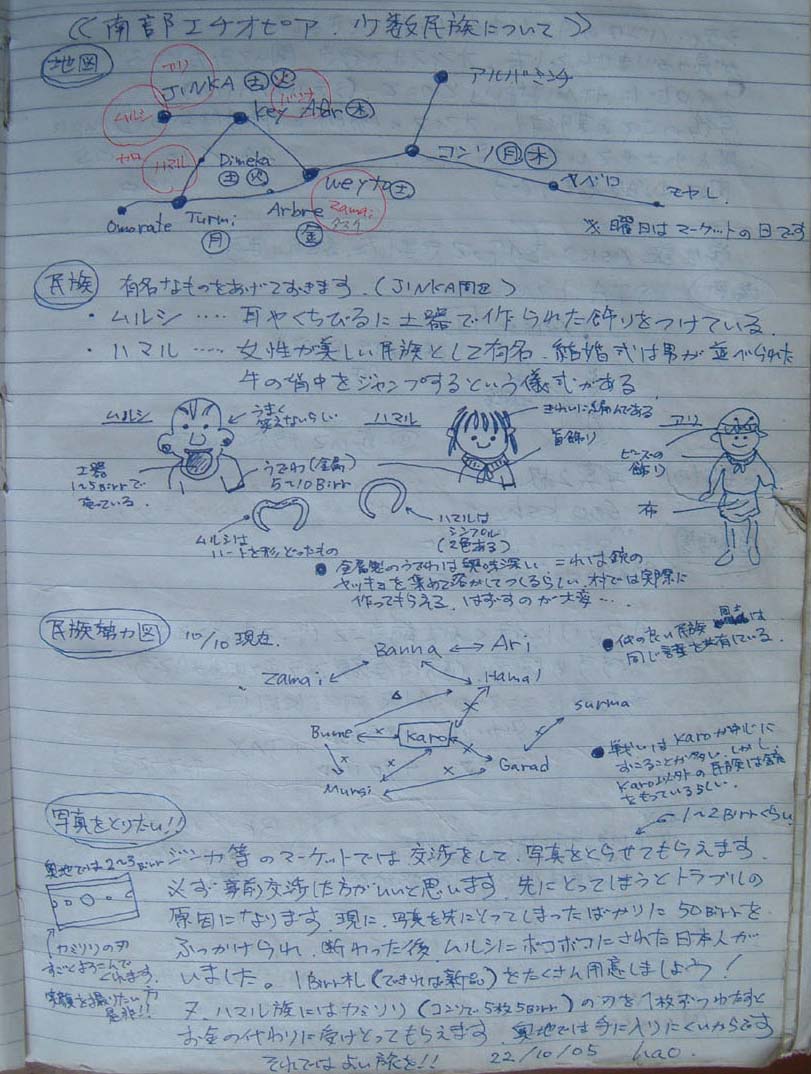 《南部エチオピア.少数民族について》
地図
アリ
JINKA 土 火
アルバミンチ
ムルシ
Key Afar 木
バンナ
カロ
ハマル
Dimeka
土 火
コンソ 月 木
weyto 土
ヤベロ
モヤレ
Omorate
Turmi
月
Arbre
金
Zamai
ツマイ
※曜日はマーケットの日です
民族 有名なものをあげておきます.(JINKA周辺)
・ムルシ ‥‥ 耳やくちびるに土器で作られた飾りをつけている.
・ハマル ‥‥ 女性が美しい民族として有名.結婚式は男が並べられた
牛の背中をジャンプするという儀式がある
ムルシ
うまく
笑えないらしい
ハマル
きれいに編んである
首飾り
アリ
ビーズの
飾り
布
土器
1~5Birrで
売っている.
うでわ(金属)
5~10Birr
ムルシは
ハートを形どったもの
ハマルは
シンプル
(2色ある)
●金属製のうでわは興味深い.これは銃の
ヤッキョを集めて溶かしてつくるらしい.村では実際に
作ってもらえる.はずすのが大変…
民族勢力図 10/10 現在.
Banna ↔ Ari
Zamai
Hamal
Bume
Karo
surma
Garad
Mursi
●仲の良い民族同士は
同じ言葉を共有している.
●戦いはKaroが中心に
おこることが多い.しかし,
Karo以外の民族は銃
をもっているらしい.
写真をとりたい!!
1~2Birrくらい
奥地では2~3Birr
ジンカ等のマーケットでは交渉をして.写真をとらせてもらえます.
必ず事前交渉した方がいいと思います.先にとってしまうとトラブルの
原因になります.現に.写真を先にとってしまったばかりに50Birrを
ふっかけられ.断わった後.ムルシにボコボコにされた日本人が
いました。1Birr札(できれば新品)をたくさん用意しましょう!
又.ハマル族にはカミソリ(コンソで.5枚5Birr)の刃を1枚ずつわたすと
お金の代わりに受けとってもらえます.奥地では手に入りにくいからです
カミソリの刃
すごくよろこんで
くれます.
笑顔を撮りたい方
是非!!
それではよい旅を!!
22/10/05 hao.